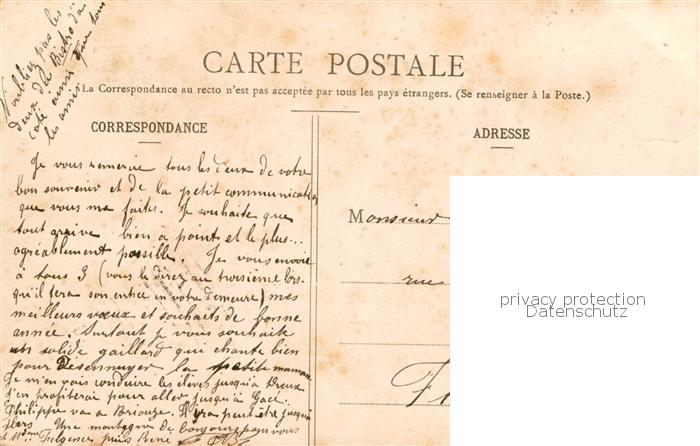 N'oubliez pas les
deux du Bistro d'à
coté ainsi que tous
les amis
CARTE POSTALE
La Correspondance au recto n'est pas acceptée par tous les pays étrangers. (Se renseigner à la Poste.)
CORRESPONDANCE
ADRESSE
Je vous remercie tous les deux de votre
bon souvenir et de la petit communication
que vous me faites. Je souhaite que
tout arrive bien à point et le plus...
agréablement possible. Je vous envoie
à tous 3 (vous le direz au troisième lors-
qu'il fera son entrée in votre demeure) mes
meilleurs vœux et souhaits de bonne
année. Surtout je vous souhaite
un solide gaillard qui chante bien
pour désennuyer la petite maman.
Je m'en vais conduire les élèves jusqu'à Dreux
j'en profiterai pour aller jusqu'à Gacé.
Philippe va à Briouze. Il ira peut être jusqu'à
Flers. Une montagne de bonjours pour vous
Fulgence puis René
Monsieur
rue
privacy protection
Datenschutz